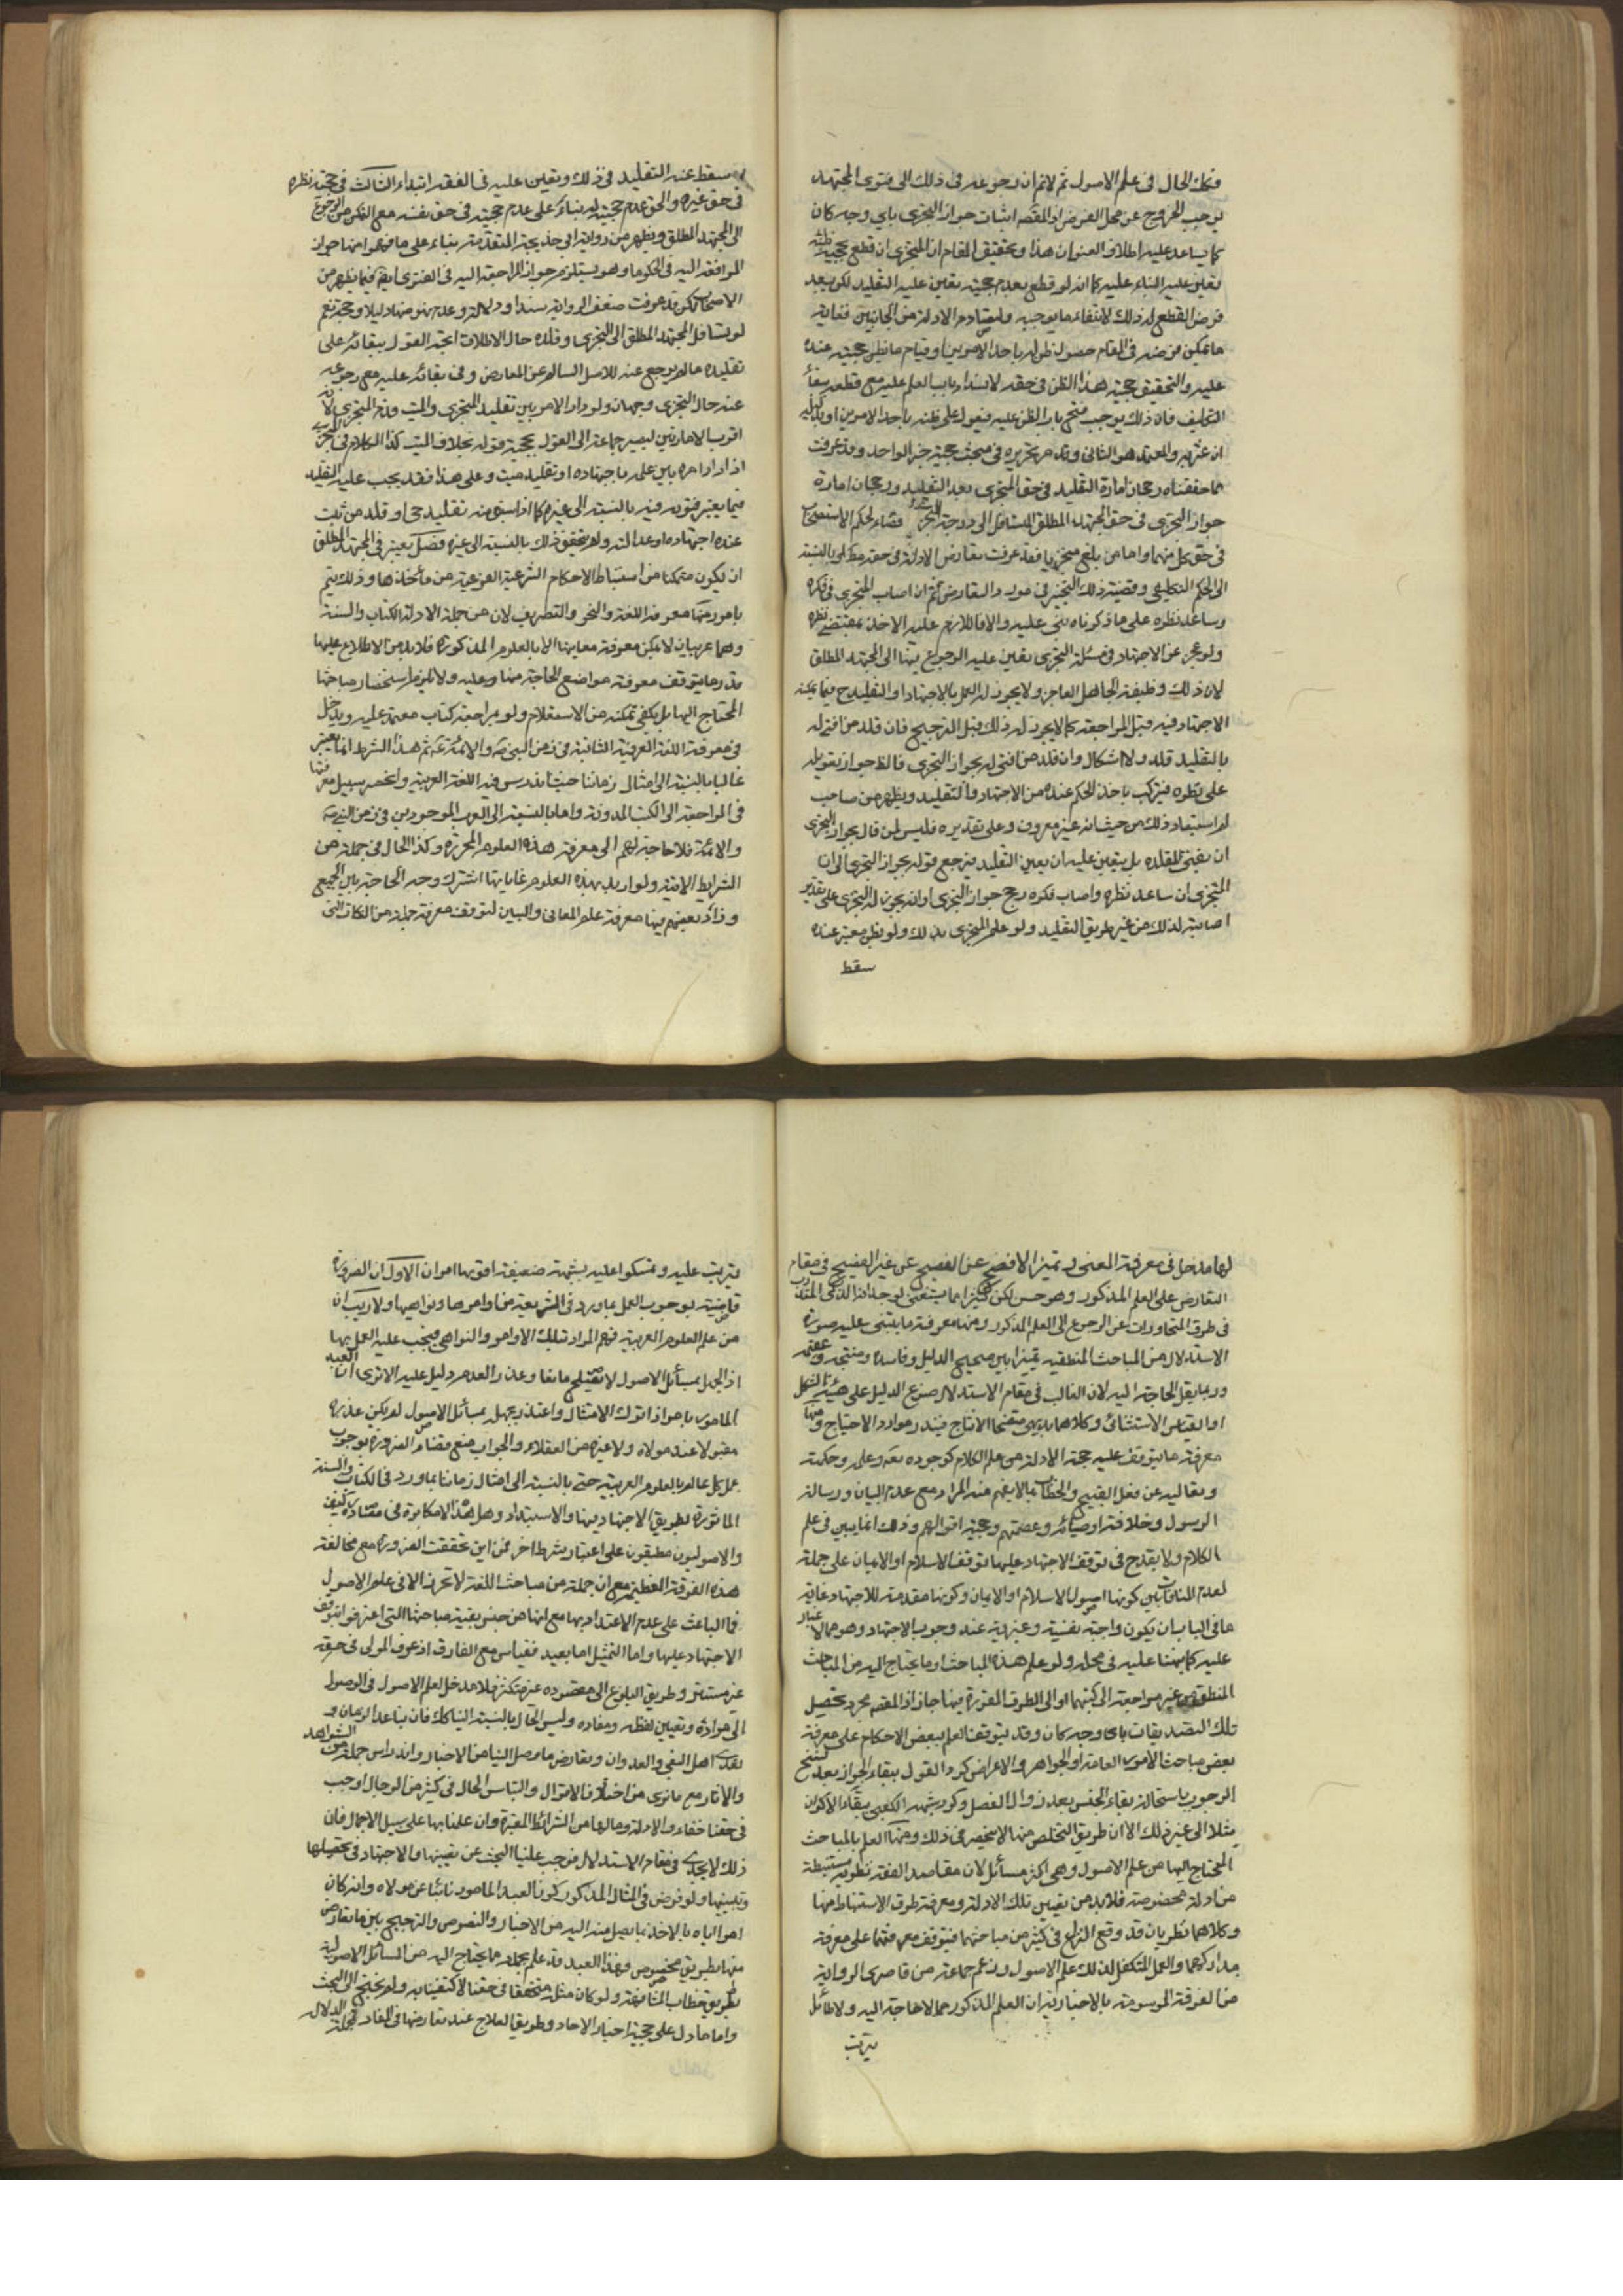 فكك الحال فى علم الاصول ثم لا نم ان رجوعه فى ذلك الى فتوى المجتهد
يوجب الخروج عن محل الفرض اذ المقصه اثبات جواز التجزى باي وجه كان
كما يساعد عليه اطلاق العنوان هذا وتحقيق المقام ان المتجزى ان قطع بحجية ظنه
تعين عليه البناء عليه كما انه لو قطع بعدم حجيته تعين عليه التقليد لكن يبعد
فرض القطع له بذلك لانتفاء ما يوجبه وتصادم الادلة من الجانبين فغاية
ما يمكن فرضه فى المقام حصول ظن له باحد الامرين او قيام ما نظن حجيته عنده
عليه والتحقيق حجية هذا الظن فى حقه لانسداد باب العلم عليه مع قطعه ببقاء
التكليف فان ذلك يوجب فتح باب الظن عليه فيعول على ظنه باحد الامرين او بدليله
ان عثر به والمعتمد هو الثانى وقد مر تحريره فى مبحث حجية خبر الواحد وقد عرفت
مما حققناه رجحان امارة التقليد فى حق المتجزى بعد التقليد ورجحان امارة
جواز التجزى فى حق المجتهد المطلق المتسافل الى درجة التجزى قضاء لحكم الاستصحاب
فى حق كل منهما واما من بلغ متجزيا فقد عرفت تعارض الادلة فى حقه بالنسبة
الى الحكم التكليفى وقضية ذلك التخيير فى موارد التعارض ثم ان اصاب المتجزى فى فكره
وساعد نظره على ما ذكرناه بنى عليه والا فاللازم عليه الاخذ بمقتضى نظره
ولو عجز عن الاجتهاد فى مسئلة التجزى تعين عليه الرجوع فيها الى المجتهد المطلق
لان ذلك وظيفة الجاهل العاجز ولا يجوز له العمل بالاجتهاد او التقليد ح فيما يمكنه
الاجتهاد فيه قبل المراجعة كما لا يجوز له ذلك قبل الترجيح فان قلد من افتى له
بالتقليد قلد ولا اشكال وان قلد من افتى له بجواز التجزى فالظ جواز تعويله
على نظره فيتركب ماخذ الحكم عنده من الاجتهاد والتقليد ويظهر من صاحب
لم استبعاد ذلك من حيث انه غير معروف وعلى تقديره فليس لمن قال بجواز التجزى
ان يفتى لمقلده بل يتعين عليه ان يعين التقليد فيرجع قوله بجواز التجزى الى ان
المتجزى ان ساعد نظره واصاب فكره رجح جواز التجزى او انه يجوز له التجزى على تقدير
اصابته لذلك من غير طريق التقليد ولو علم المتجزى بذلك ولو بظن معتبر عنده
سقط
سقط عنه التقليد فى ذلك وتعين عليه فى الفقه ابتداء الثالث فى حجية نظره
فى حق غيره والحق عدم حجيته له بناء على عدم حجيته فى حق نفسه مع التمكن من الرجوع
الى المجتهد المطلق ويظهر من رواية ابى خديجة المتقدمة بناء على ما فهموا منها جواز
المرافعة اليه فى الحكومة وهو يستلزم جواز المراجعة اليه فى الفتوى ايضا فيما يظهر من
الاصحاب لكن قد عرفت ضعف الرواية سندا ودلالة وعدم نهوضها دليلا وحجة نعم
لو تسافل المجتهد المطلق الى التجزى وقلده حال الاطلاق اتجه القول ببقائه على
تقليده ما لم يرجع عنه للاصل السالم عن المعارض وفى بقائه عليه مع رجوعه
عنه حال التجزى وجهان ولو دار الامر بين تقليد المتجزى والميت قدم المتجزى لانه
اقرب الامارتين لمصير جماعة الى القول بحجية قوله بخلاف الميت كذا الكلام فى المتجزى
اذا دار امره بين عمله باجتهاده او تقليد ميت وعلى هذا فقد يجب عليه التقليد
فيما يعتبر فتويه فيه بالنسبة الى غيره كما اذا سبق منه تقليد حى او قلد من ثبت
عنده اجتهاده او عدالته ولم يتحقق ذلك بالنسبة الى غيره فصل يعتبر فى المجتهد المطلق
ان يكون متمكنا من استنباط الاحكام الشرعية الفرعية من مأخذها وذلك يتم
بامور منها معرفة اللغة والنحو والتصريف لان من جملة الادلة الكتاب والسنة
وهما عربيان لا يمكن معرفة معانيهما الا بالعلوم المذكورة فلا بد من الاطلاع عليها
قدر ما يتوقف معرفة مواضع الحاجة منها وعليه ولا يلزم استحضار مباحثها
المحتاج اليها بل يكفى تمكنه من الاستعلام ولو بمراجعة كتاب معتمد عليه ويدخل
فى معرفة اللغة العرفية الثابتة فى زمن النبى ص والائمة ع ثم هذا الشرط انما يعتبر
غالبا بالنسبة الى امثال زماننا حيث اندرس فيه اللغة العربية وانحصر سبيل معرفتها
فى المراجعة الى الكتب المدونة واما بالنسبة الى العرب الموجودين فى زمن النبى ص
والائمة فلا حاجة لهم الى معرفة هذه العلوم المحررة وكذا الحال فى جملة من
الشرايط الاتية ولو اريد بهذه العلوم غاياتها اشترك وجه الحاجة بين الجميع
وزاد بعضهم فيها معرفة علم المعانى والبيان لتوقف معرفة جملة من النكات التى
لها مدخل فى معرفة المعنى وتميز الافصح عن الفصيح عن غير الفصيح فى مقام
التعارض على العلم المذكور وهو حسن لكن كثيرا ما يستغنى بوجدان الذكى المتدرب
فى طرق المحاورات عن الرجوع الى العلم المذكور ومنها معرفة ما يبتنى عليه صورة
الاستدلال من المباحث المنطقية تميزا بين صحيح الدليل وفاسده ومنتجه وعقيمه
وربما يقل الحاجة اليه لان الغالب فى مقام الاستدلال صوغ الدليل على هيئة الشكل
او القياس الاستثنائى وكلاهما بديهى متضحا الانتاج فيندر موارد الاحتياج ومنها
معرفة ما يتوقف عليه حجة الادلة من علم الكلام كوجوده تعه وعلمه وحكمته
وتعاليه عن فعل القبيح والخطاب بما لا يفهم منه المراد مع عدم البيان ورسالة
الرسول وخلافة اوصيائه وعصمتهم وحجية اقوالهم وذلك انما يبين فى علم
الكلام ولا يقدح فى توقف الاجتهاد عليها توقف الاسلام او الايمان على جملة
لعدم المنافات بين كونها اصول الاسلام او الايمان وكونها مقدمة للاجتهاد غاية
ما فى الباب ان يكون واجبة نفسية وغيرية عند وجوب الاجتهاد وهو مما لا غبار
عليه كما نبهنا عليه فى محله ولو علم هذه المباحث او ما يحتاج اليه من المباحث
المنطقية من غير مراجعة الى كتبهما او الى الطرق المقررة فيها جاز اذ المقصم مجرد تحصيل
تلك التصديقات باى وجه كان وقد يتوقف العلم ببعض الاحكام على معرفة
بعض مباحث الامور العامة او الجواهر والاعراض كرد القول ببقاء الجواز بعد نسخ
الوجوب باستحالة بقاء الجنس بعد زوال الفصل وكرد شبهة الكعبى ببقاء الاكوان
مثلا الى غير ذلك الا ان طريق التخلص منها لا ينحصر فى ذلك ومنها العلم بالمباحث
المحتاج اليها من علم الاصول وهى اكثر مسائله لان مقاصد الفقه نظرية مستنبطة
من ادلة مخصوصة فلا بد من تعيين تلك الادلة ومعرفة طرق الاستنباط منها
وكلاهما نظريان قد وقع النزاع فى كثير من مباحثهما فيتوقف معرفتهما على معرفة
مداركهما والعلم المتكفل لذلك علم الاصول وزعم جماعة من قاصرى الرواية
من الفرقة الموسومة بالاخبارية ان العلم المذكور مما لا حاجة اليه ولا طائل
يترتب
يترتب عليه وتمسكوا عليه بشبهة ضعيفة اقويها امران الاول ان الضرورة
قاضية بوجوب العمل بما ورد فى الشريعة من اوامرها ونواهيها ولا ريب ان
من علم العلوم العربية فهم المراد تلك الاوامر والنواهى فيجب عليه العمل بها
اذ الجهل بمسائل الاصول لا يصلح مانعا وعذرا لعدم دليل عليه الا ترى ان العبد
المامور بامر اذا ترك الامتثال واعتذر بجهله بمسائل الاصول لم يكن عذره
مقبولا عند مولاه ولا غيره من العقلاء والجواب منع قضاء الضرورة بوجوب
عمل كل عالم بالعلوم العربية حتى بالنسبة الى امثال زماننا بما ورد فى الكتاب والسنة
الماثورة بطريق الاجتهاد فيها والاستبداد وهل هذا الا مكابرة فى مقابلة كيف
والاصوليون مطبقون على اعتبار شرط اخر فمن اين تحققت الضرورة مع مخالفة
هذه الفرقة العظيمة مع ان جملة من مباحث اللغة لا تحرر الا فى علم الاصول
فما الباعث على عدم الاعتداد بها مع انها من جنس بقية مباحثها التى اعترفوا بتوقف
الاجتهاد عليها واما التمثيل بما بعيد فقياس مع الفارق اذ عرف المولى فى حقه
غير مستتر وطريق البلوغ الى مقصوده غير متكثر فلا مدخل لعلم الاصول فى الوصول
الى مراده وتعيين لفظه ومفاده وليس الحال بالنسبة الينا كك فان تباعد الزمان و
تعدى اهل البغى والعدوان وتعارض ما وصل الينا من الاخبار واندراس جملة من الشواهد
والاثار مع ما نرى من اختلاف الاقوال والتباس الحال فى كثير من الرجال اوجب
فى حقنا خفاء والادلة وما لها من الشرائط المعتبرة وان علمنا بها على سبيل الاجمال فان
ذلك لا يجدى فى مقام الاستدلال فوجب علينا البحث عن تعيينها والاجتهاد فى تحصيلها
وتبيينها ولو فرض فى المثال المذكور كون العبد المامور نائيا عن مولاه وان كان
امره اياه بالاخذ بما يصل منه اليه من الاخبار والنصوص والترجيح بين ما تعارض
منها بطريق مخصوص فهذا العبد قد علم بجملة ما يحتاج اليه من المسائل الاصولية
بطريق خطاب المشافهة ولو كان مثله متحققا فى حقنا لاكتفينا به ولم نحتج الى البحث
واما ما دل على حجية اخبار الاحاد وطريق العلاج عند تعارضها فى المفاد فجملة الدلال